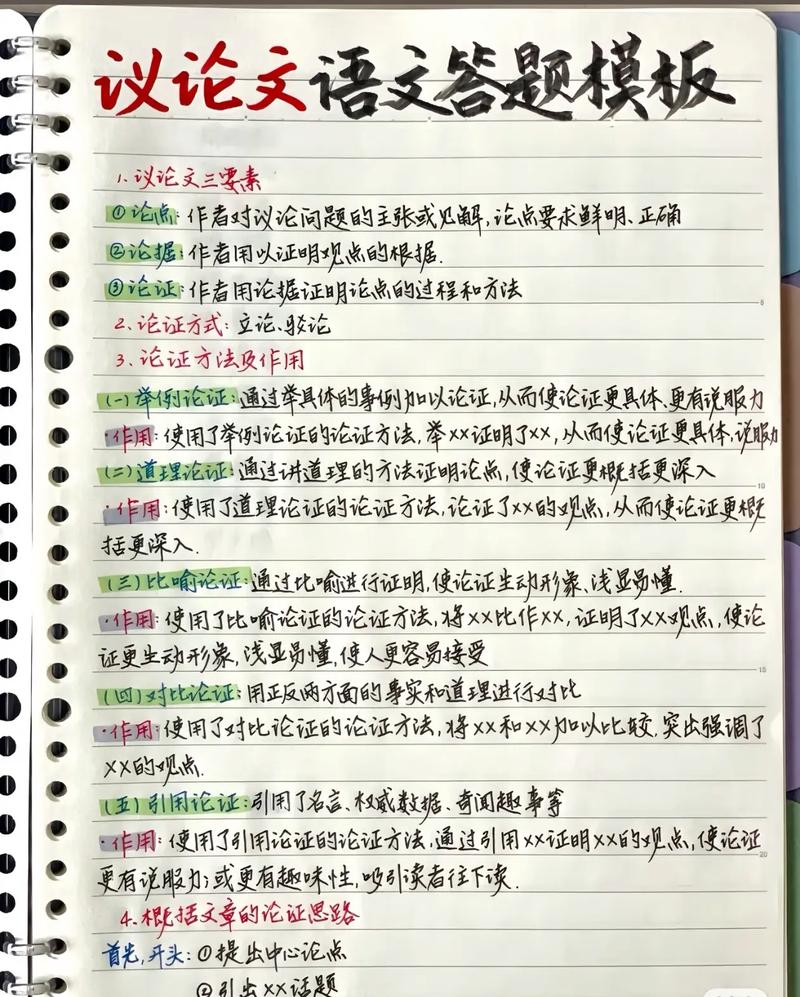 议论文语文答题模板
1、议论文三要素
①论点:作者对议论问题的主张或见解,论点要求鲜明、正确
②论据:作者用以证明观点的根据.
③论证:作者用论据证明论点的过程和方法
2、论证方式:立论、驳论
3、论证方法及作用
(一)举例论证:通过举具体的事例加以论证,从而使论证更具体、更有说服力
·作用:使用了举例论证的论证方法,举××证明了××,从而使论证更具体,说服力
(二)道理论证:通过讲道理的方法证明论点,使论证更概括更深入
·作用:使用了道理论证的论证方法,论证了××的观点,从而使论证更概
括更深入.
(三)比喻论证:通过比喻进行证明,使论证生动形象、浅显易懂.
·作用:使用了比喻论证的论证方法,将××比作××,证明了××观点,使论
证更生动形象,浅显易懂,使人更容易接受
(四)对比论证:用正反两方面的事实和道理进行对比
·作用:使用了对比论证的论证方法,将××和××加以比较,突出强调了
××的观点.
(五)引用论证:引用了名言、权威数据、奇闻趣事等
·作用:使用了引用论证的论证方法,通过引用××证明××的观点,使论证
更有说服力;或更有趣味性,吸引读者往下读.
4、概括文章的论证思路
首先,开头:①提出中心论点
②引出××话题